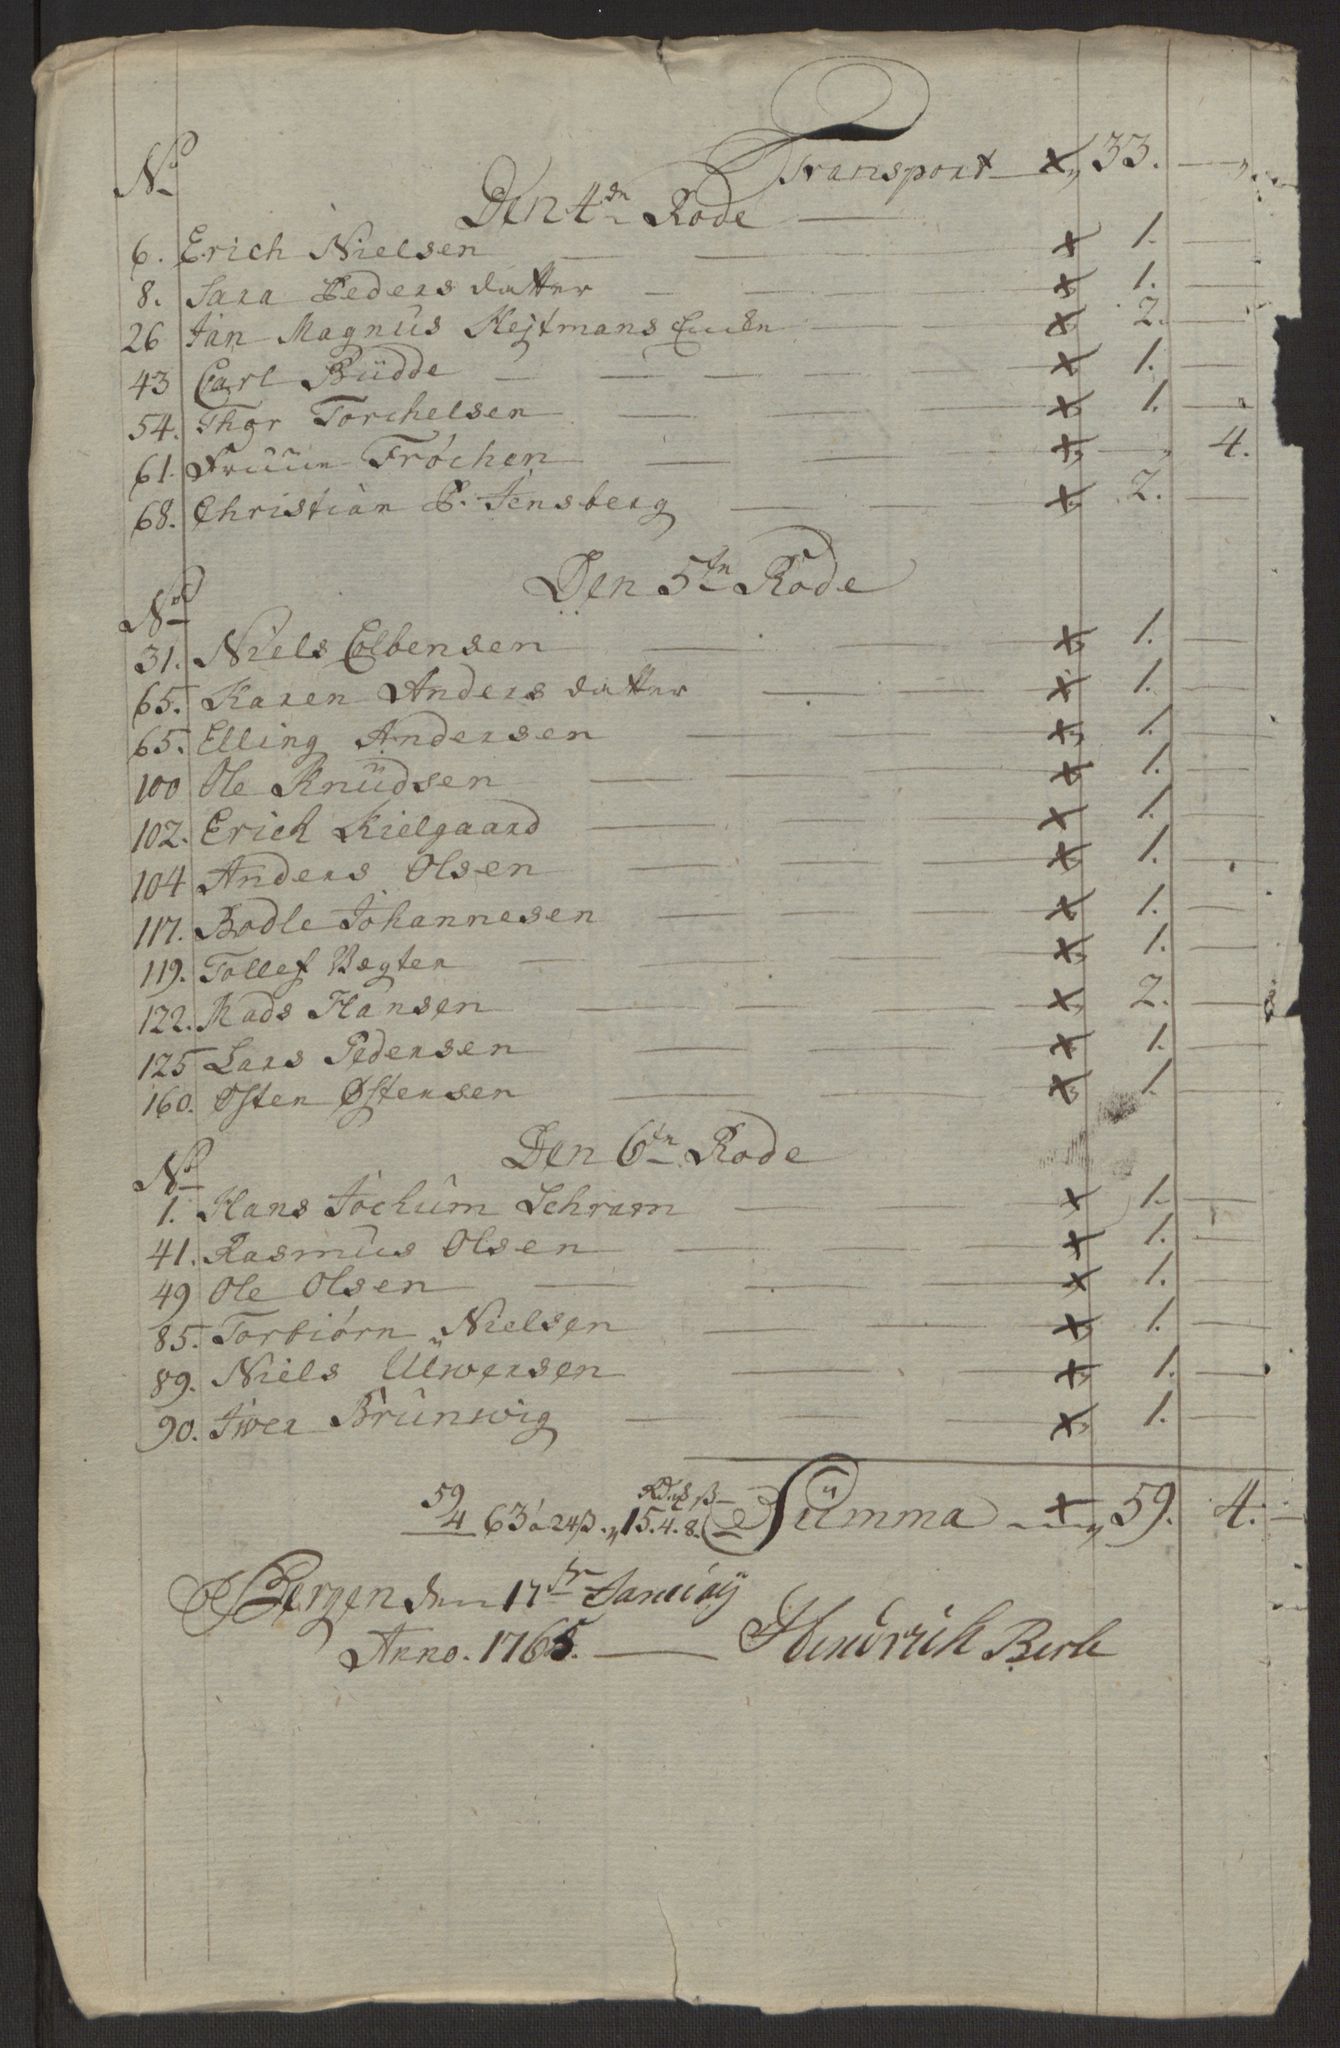 Transport x„ 33. — „
No
Den 4de Rode
6. Erich Nielsen — x 1. —
8. Sara Peders datter — x 1. —
26 Jan Magnus Hejtmans — x 2. —
43 Carl Büdde — x 1. —
54. Thor Torchelsen — x 1. — „
61. Fröchen — x„ — „ 4.
68. Christian B. Jensberg — x„ 2. —
Den 5te Rode
No
31. Niels Colbensen — x„ 1. —
65. Karen Anders datter — x 1. —
65. Elling Andersen — x„ 1. —
100 Ole Knüdsen — x 1. —
102. Erich Kielgaard — x 1. —
104 Anders Olsen — x„ 1. —
117. Bodle Johannesen — x„ 1. —
119. Tollef Vegter — x„ 1. —
122. Mads Hansen — x„ 2. —
125 Lars Pedersen — x„ 1. —
160. Osten Østensen — x„ 1. —
Den 6te Rode
No
1. Hans Jochüm Schram — x 1. —
41. Rasmüs Olsen — x 1. —
49 Ole Olsen — x 1. —
85. Torbiörn Nielsen — x„ 1. —
89. Niels Ülwersen — x„ 1. —
90. Iwer Brünwig — x„ 1. —
59
4 63 a 24ß. „ 15. 4. 8. Sümma x „ 59. 4. —
Bergen den 17de Januarÿ
Anno. 1765. — Hendrich Berle